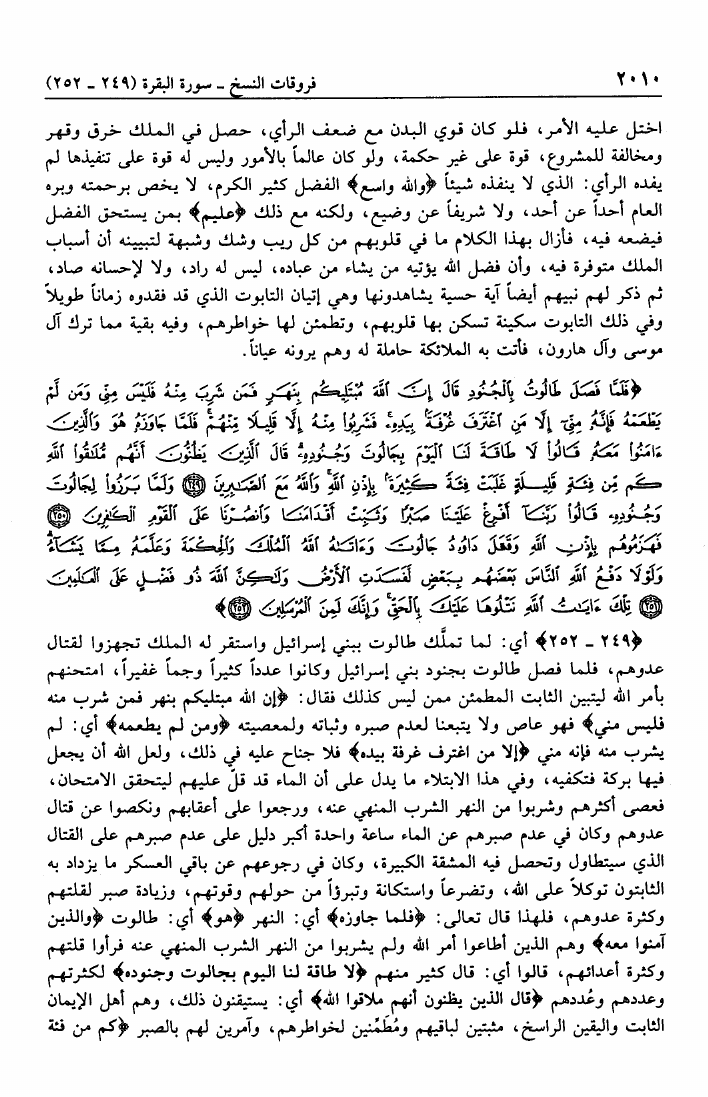 ٢٠١٠ فروقات النسخ ـ سورة البقرة (٢٤٩ ـ ٢٥٢)
اختل عليه الأمر، فلو كان قوي البدن مع ضعف الرأي، حصل في الملك خرق وقهر
ومخالفة للمشروع، قوة على غير حكمة، ولو كان عالماً بالأمور وليس له قوة على تنفيذها لم
يفده الرأي: الذي لا ينفذه شيئاً ﴿والله واسع﴾ الفضل كثير الكرم، لا يخص برحمته وبره
العام أحداً عن أحد، ولا شريفاً عن وضيع، ولكنه مع ذلك ﴿عليم﴾ بمن يستحق الفضل
فيضعه فيه، فأزال بهذا الكلام ما في قلوبهم من كل ريب وشك وشبهة لتبيينه أن أسباب
الملك متوفرة فيه، وأن فضل الله يؤتيه من يشاء من عباده، ليس له راد، ولا لإحسانه صاد،
ثم ذكر لهم نبيهم أيضاً آية حسية يشاهدونها وهي إتيان التابوت الذي قد فقدوه زماناً طويلاً
وفي ذلك التابوت سكينة تسكن بها قلوبهم، وتطمئن لها خواطرهم، وفيه بقية مما ترك آل
موسى وآل هارون، فأتت به الملائكة حاملة له وهم يرونه عياناً.
﴿فَلَمَّا فَصَلَ طَالُوتُ بِٱلْجُنُودِ قَالَ إِنَّ ٱللَّهَ مُبْتَلِيكُم بِنَهَرٍ فَمَن شَرِبَ مِنْهُ فَلَيْسَ مِنِّى وَمَن لَّمْ
يَطْعَمْهُ فَإِنَّهُ مِنِّىٓ إِلَّا مَنِ ٱغْتَرَفَ غُرْفَةً بِيَدِهِۦ فَشَرِبُوا۟ مِنْهُ إِلَّا قَلِيلًا مِّنْهُمْ فَلَمَّا جَاوَزَهُ هُوَ وَٱلَّذِينَ
ءَامَنُوا۟ مَعَهُ قَالُوا۟ لَا طَاقَةَ لَنَا ٱلْيَوْمَ بِجَالُوتَ وَجُنُودِهِۦ قَالَ ٱلَّذِينَ يَظُنُّونَ أَنَّهُم مُّلَٰقُوا۟ ٱللَّهِ
كَم مِّن فِئَةٍ قَلِيلَةٍ غَلَبَتْ فِئَةً كَثِيرَةً بِإِذْنِ ٱللَّهِ وَٱللَّهُ مَعَ ٱلصَّٰبِرِينَ ٢٤٩ وَلَمَّا بَرَزُوا۟ لِجَالُوتَ
وَجُنُودِهِۦ قَالُوا۟ رَبَّنَآ أَفْرِغْ عَلَيْنَا صَبْرًا وَثَبِّتْ أَقْدَامَنَا وَٱنصُرْنَا عَلَى ٱلْقَوْمِ ٱلْكَٰفِرِينَ ٢٥٠
فَهَزَمُوهُم بِإِذْنِ ٱللَّهِ وَقَتَلَ دَاوُۥدُ جَالُوتَ وَءَاتَىٰهُ ٱللَّهُ ٱلْمُلْكَ وَٱلْحِكْمَةَ وَعَلَّمَهُ مِمَّا يَشَآءُ
وَلَوْلَا دَفْعُ ٱللَّهِ ٱلنَّاسَ بَعْضَهُم بِبَعْضٍ لَّفَسَدَتِ ٱلْأَرْضُ وَلَٰكِنَّ ٱللَّهَ ذُو فَضْلٍ عَلَى ٱلْعَٰلَمِينَ
٢٥١ تِلْكَ ءَايَٰتُ ٱللَّهِ نَتْلُوهَا عَلَيْكَ بِٱلْحَقِّ وَإِنَّكَ لَمِنَ ٱلْمُرْسَلِينَ ٢٥٢﴾
﴿٢٤٩ ـ ٢٥٢﴾ أي: لما تملَّك طالوت ببني إسرائيل واستقر له الملك تجهزوا لقتال
عدوهم، فلما فصل طالوت بجنود بني إسرائيل وكانوا عدداً كثيراً وجماً غفيراً، امتحنهم
بأمر الله ليتبين الثابت المطمئن ممن ليس كذلك فقال: ﴿إن الله مبتليكم بنهر فمن شرب منه
فليس مني﴾ فهو عاص ولا يتبعنا لعدم صبره وثباته ولمعصيته ﴿ومن لم يطعمه﴾ أي: لم
يشرب منه فإنه مني ﴿إلا من اغترف غرفة بيده﴾ فلا جناح عليه في ذلك، ولعل الله أن يجعل
فيها بركة فتكفيه، وفي هذا الابتلاء ما يدل على أن الماء قد قلّ عليهم ليتحقق الامتحان،
فعصى أكثرهم وشربوا من النهر الشرب المنهي عنه، ورجعوا على أعقابهم ونكصوا عن قتال
عدوهم وكان في عدم صبرهم عن الماء ساعة واحدة أكبر دليل على عدم صبرهم على القتال
الذي سيتطاول وتحصل فيه المشقة الكبيرة، وكان في رجوعهم عن باقي العسكر ما يزداد به
الثابتون توكلاً على الله، وتضرعاً واستكانة وتبرؤاً من حولهم وقوتهم، وزيادة صبر لقلتهم
وكثرة عدوهم، فلهذا قال تعالى: ﴿فلما جاوزه﴾ أي: النهر ﴿هو﴾ أي: طالوت ﴿والذين
آمنوا معه﴾ وهم الذين أطاعوا أمر الله ولم يشربوا من النهر الشرب المنهي عنه فرأوا قلتهم
وكثرة أعدائهم، قالوا أي: قال كثير منهم ﴿لا طاقة لنا اليوم بجالوت وجنوده﴾ لكثرتهم
وعددهم وعُددهم ﴿قال الذين يظنون أنهم ملاقوا الله﴾ أي: يستيقنون ذلك، وهم أهل الإيمان
الثابت واليقين الراسخ، مثبتين لباقيهم ومُطَمِّنين لخواطرهم، وآمرين لهم بالصبر ﴿كم من فئة